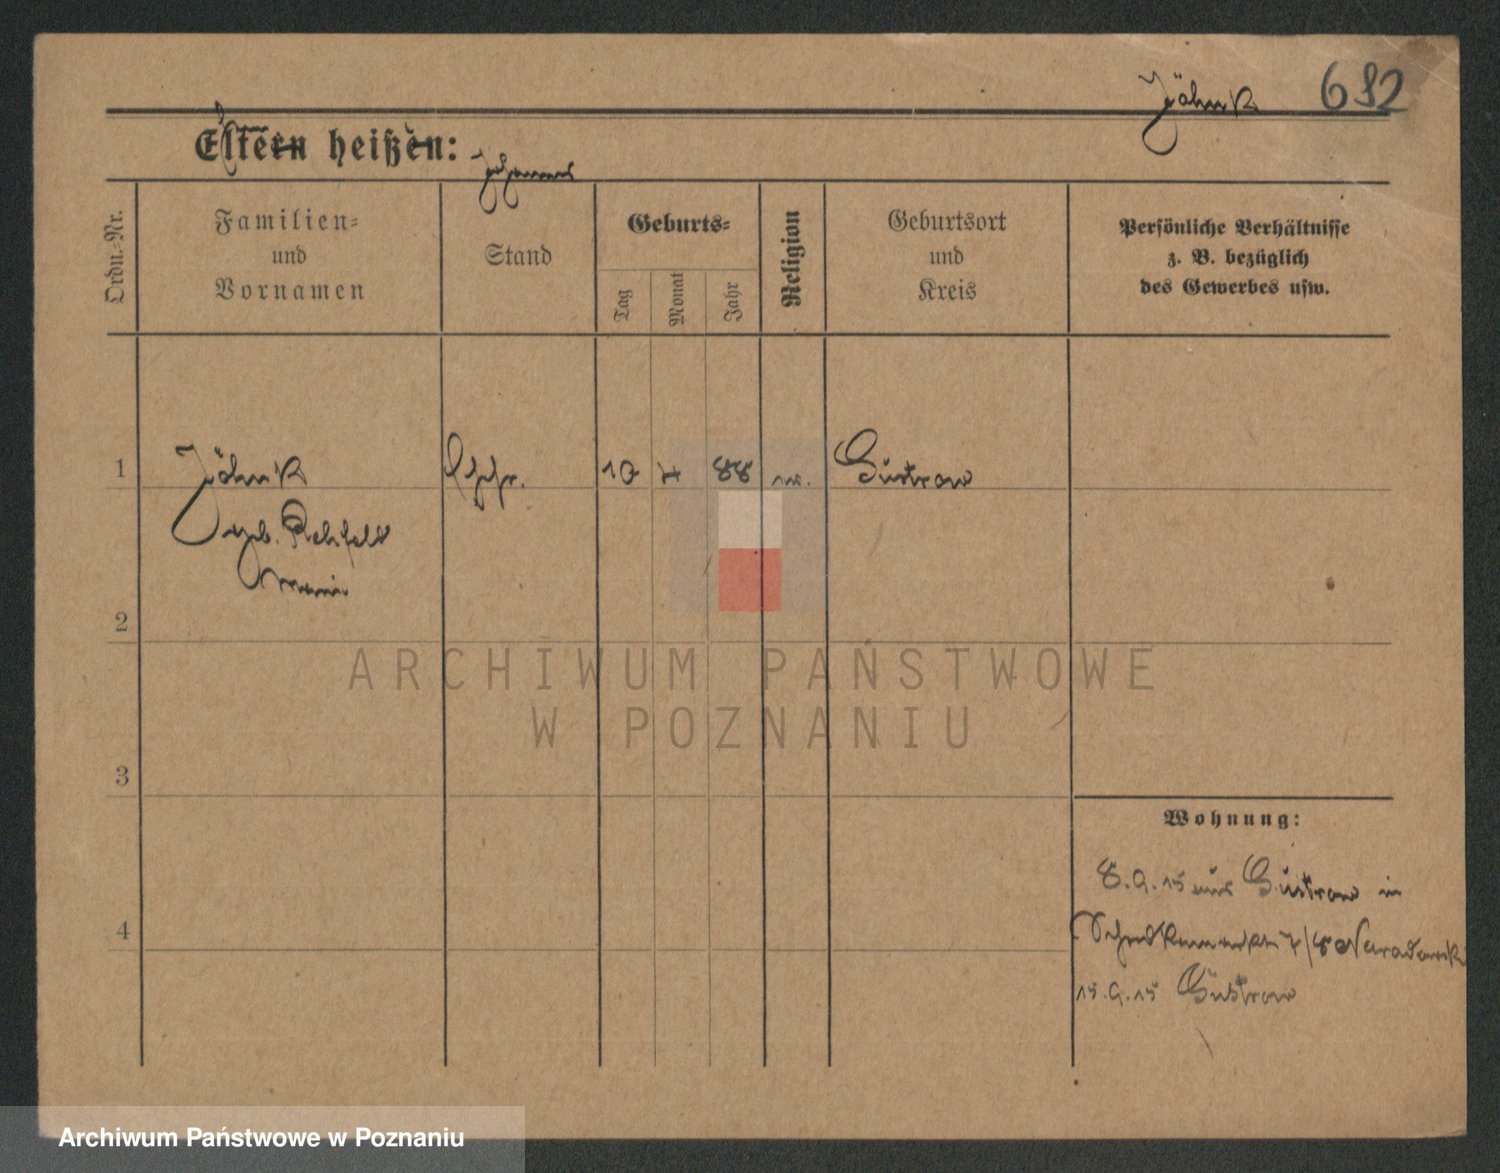 Jähnk 692
Eltern heißen:
Johannes
Ordn.-Nr.
Familien-
und
Vornamen
Stand
Geburts-
Tag
Monat
Jahr
Religion
Geburtsort
und
Kreis
Persönliche Verhältnisse
z. B. bezüglich
des Gewerbes usw.
1 Jähnk 10 88 Güstrow
geb. Rehfeldt
2
3
4
Wohnung:
8.9.15 aus Güstrow in
7/8
15.9.15 Güstrow
ARCHIWUM PAŃSTWOWE
W POZNANIU
Archiwum Państwowe w Poznaniu